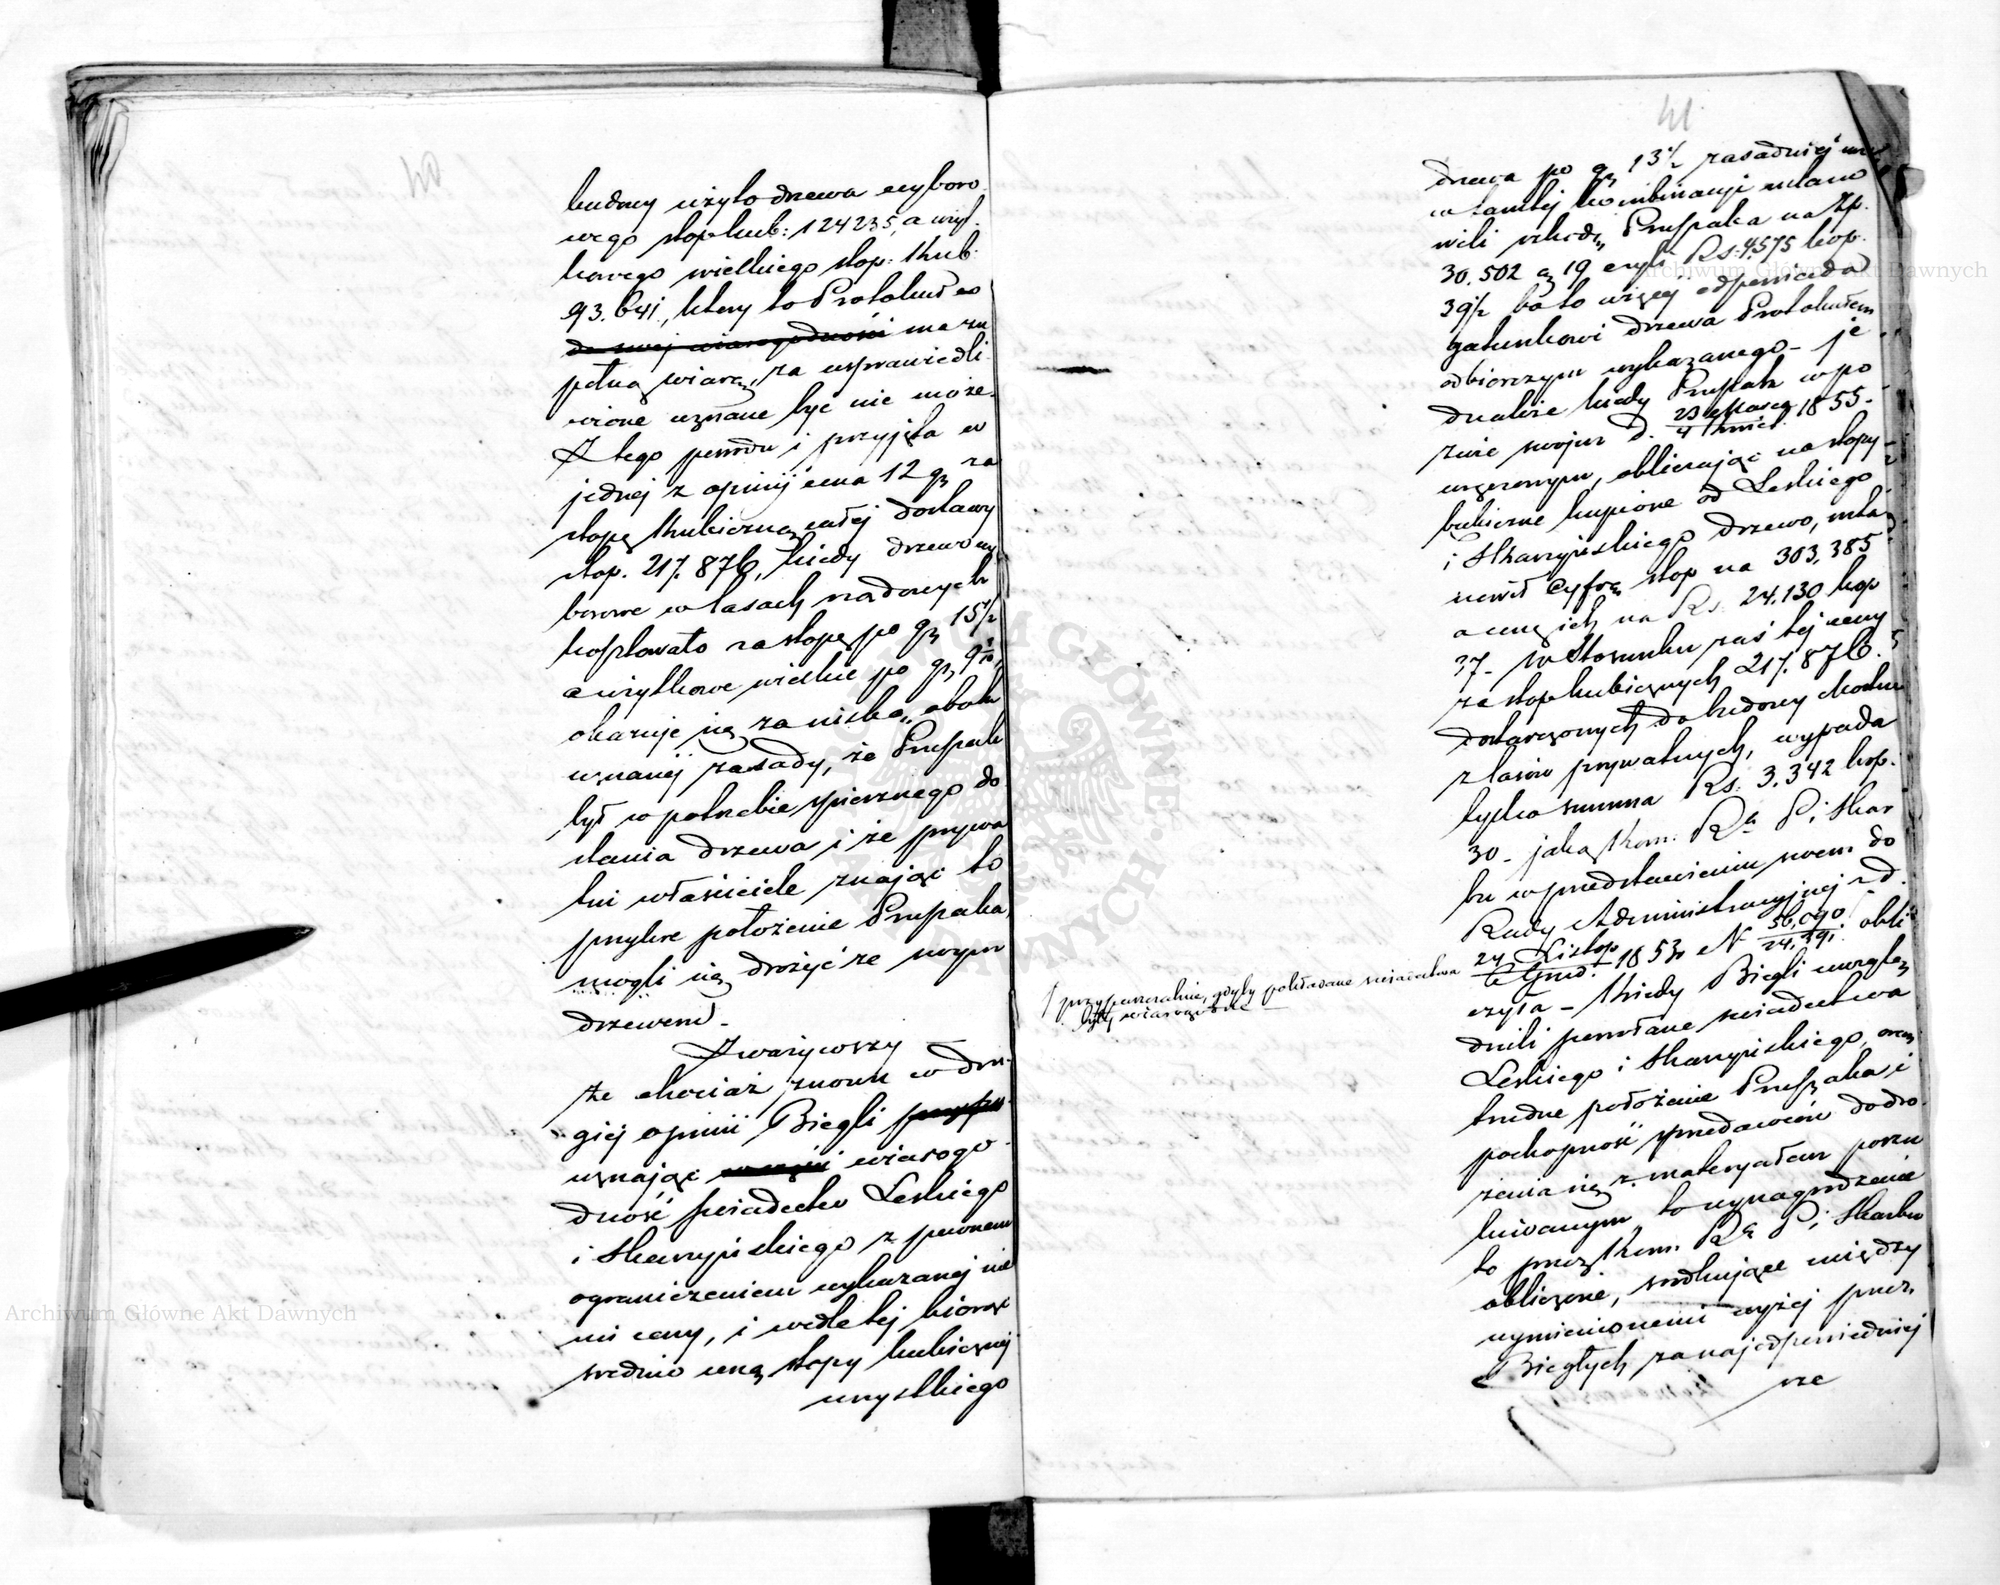 40
budowy użyto drzewa wyboro
wego stop kub: 124235, a wyt
kowego wielkiego stop: Kub:
93.641, który to Protokuł co
do swej wiarogodności ma zu
pełną wiarę, za usprawiedli
wione uznane być nie może.
Z tego powodu i przyjęta w
jednej z opinij cena 12 gr za
stopę Kubiczną całej dostawy
stop. 217.876, kiedy drzewo wy
borowe w lasach rządowych
kosztowało za stopę po gr 15½
a użytkowe wielkie po gr 9
okazuje się za niska, obok
uznanej zasady, że Pruszak
był w potrzebie spiesznego do
stania drzewa i że prywa
tni właściciele znając to
przykre położenie Pruszaka,
mogli się drożyć ze swym
drzewem.
Zważywszy
że chociaż znowu w dru-
giej opinii Biegli
uznając wiarogo
dność świadectw Leskiego
i Skarzyńskiego z pewnem
ograniczeniem wykazanej nie
mi ceny, i wedle tej biorąc
srednio cenę stopy kubicznej
wszystkiego
41
drzewa po gr 13½ zasadniej
w tamtej kombinacji ustano
wili szkodę Pruszaka na Zp.
30.502 gr 19 czyli Rs. 4575 kop.
39½ bo to więcej odpowiada
gatunkowi drzewa Protokułem
odbiorczym wykazanego - je
dnakże kiedy Pruszak w po
zwie swojem d. 23 Marca / 4 Kwiet. 1855.
wyżerzonym, obliczając na stopy
kubiczne kupione od Leskiego
i Skarzyńskiego drzewo, usta
nowił cyfrę stop na 303,385
a cenę ich na Rs. 24.130 kop
37 - w stosunku zaś tej ceny
za stop kubicznych 217.876.
dostarczonych do budowy
z lasów prywatnych, wypada
tylko summa Rs. 3.342 kop.
30 - jaką Kom. Rz. P. i Skar
bu w przedstawieniu swem do
Rady Administracyjnej z d.
24 Listop / 6 Grud. 1853 N 56,090 / 24,391. obli
czyła - Kiedy Biegli uwzglę
dnili powołane świadectwa
Leskiego i Skarzyńskiego, oraz
trudne położenie Pruszaka i
pochopność sprzedawców do dro
żenia się z materyałem poszu
kiwanym, to wynagrodzenie
to przez Kom. Rz. P. i Skarbu
obliczone, srodkujące między
wymienionemi wyżej przez
Biegłych, za najodpowiedniej
sze
przypuszczalnie, gdyby pokładane świadectwa
były wiarogodne
Archiwum Główne Akt Dawnych
Archiwum Główne Akt Dawnych
ARCHIWUM GŁÓWNE AKT DAWNYCH